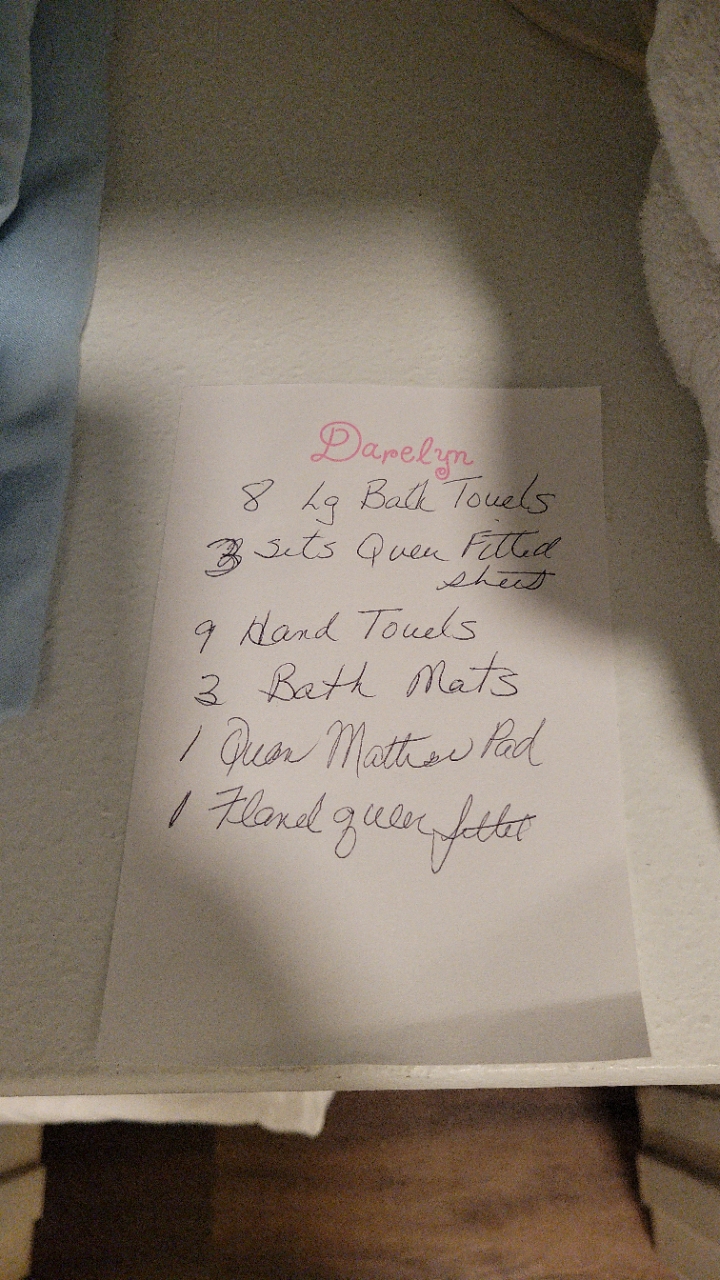 Darelyn
8 Lg Bath Towels
3 Sets Queen Fitted
sheets
9 Hand Towels
3 Bath Mats
1 Queen Mattress Pad
1 Flanel queen fitted